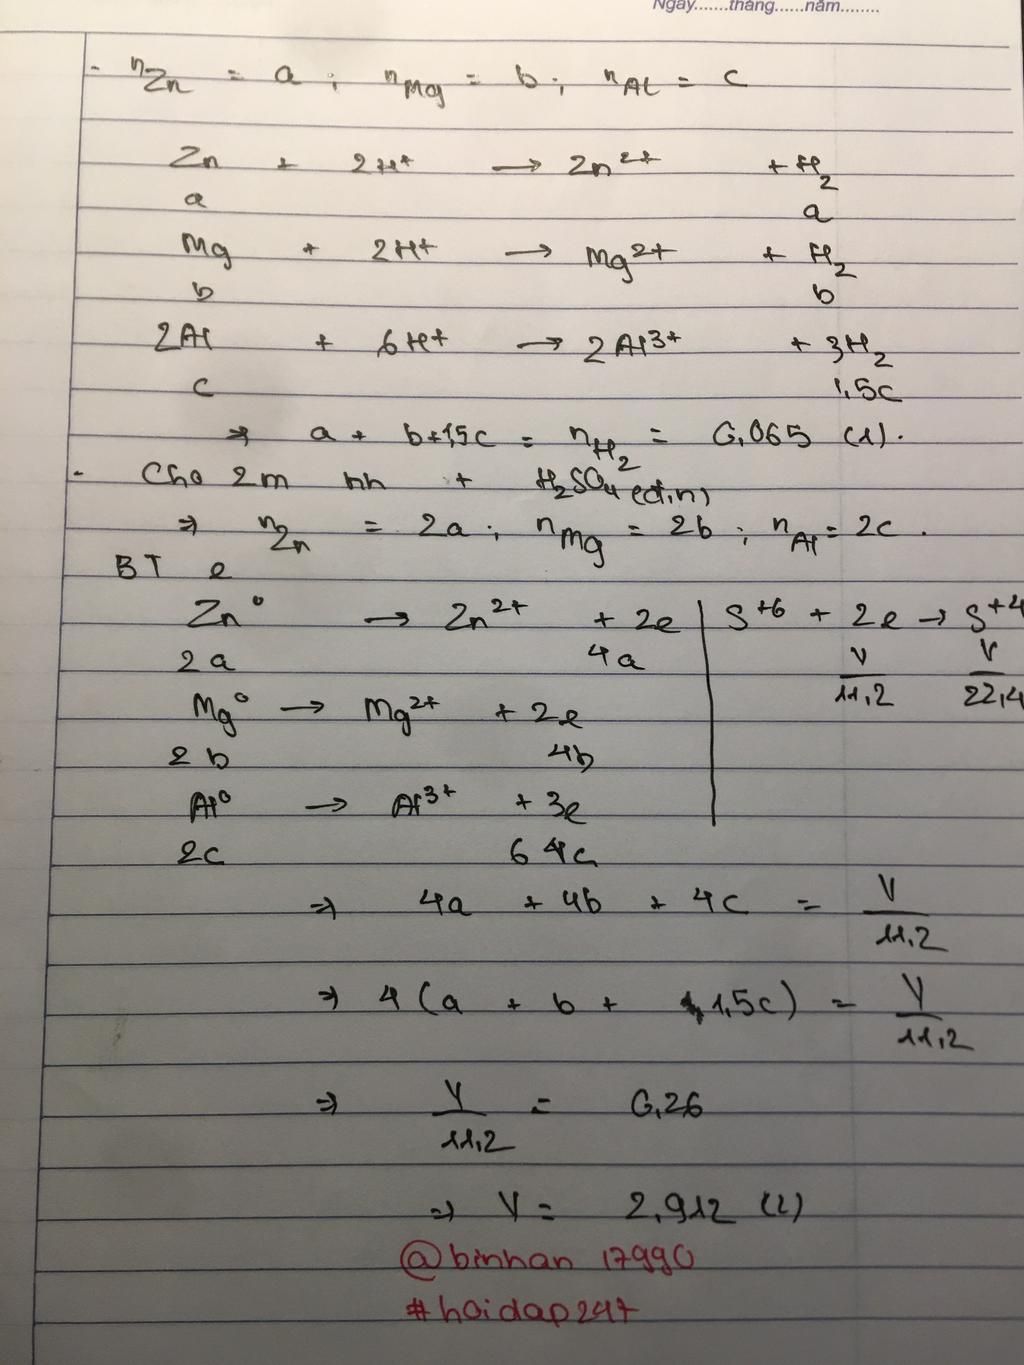 Ngày.......tháng......năm........
- nZn = a ; nMg = b ; nAl = c
Zn + 2H+ → Zn²⁺ + H₂
a a
Mg + 2H+ → Mg²⁺ + H₂
b b
2Al + 6H+ → 2Al³⁺ + 3H₂
c 1,5c
⇒ a + b+1,5c = nH₂ = 0,065 (1).
- Cho 2m hh + H₂SO₄ (đ,n)
⇒ nZn = 2a ; nMg = 2b ; nAl = 2c .
BT e
Zn⁰ → Zn²⁺ + 2e | S⁺⁶ + 2e → S⁺⁴
2a 4a V/11,2 V/22,4
Mg⁰ → Mg²⁺ + 2e
2b 4b
Al⁰ → Al³⁺ + 3e
2c 6 4c
⇒ 4a + 4b + 4c = V/11,2
⇒ 4(a + b + 1,5c) = V/11,2
⇒ V/11,2 = 0,26
⇒ V = 2,912 (l)
@binhan 17990
#hoidap247